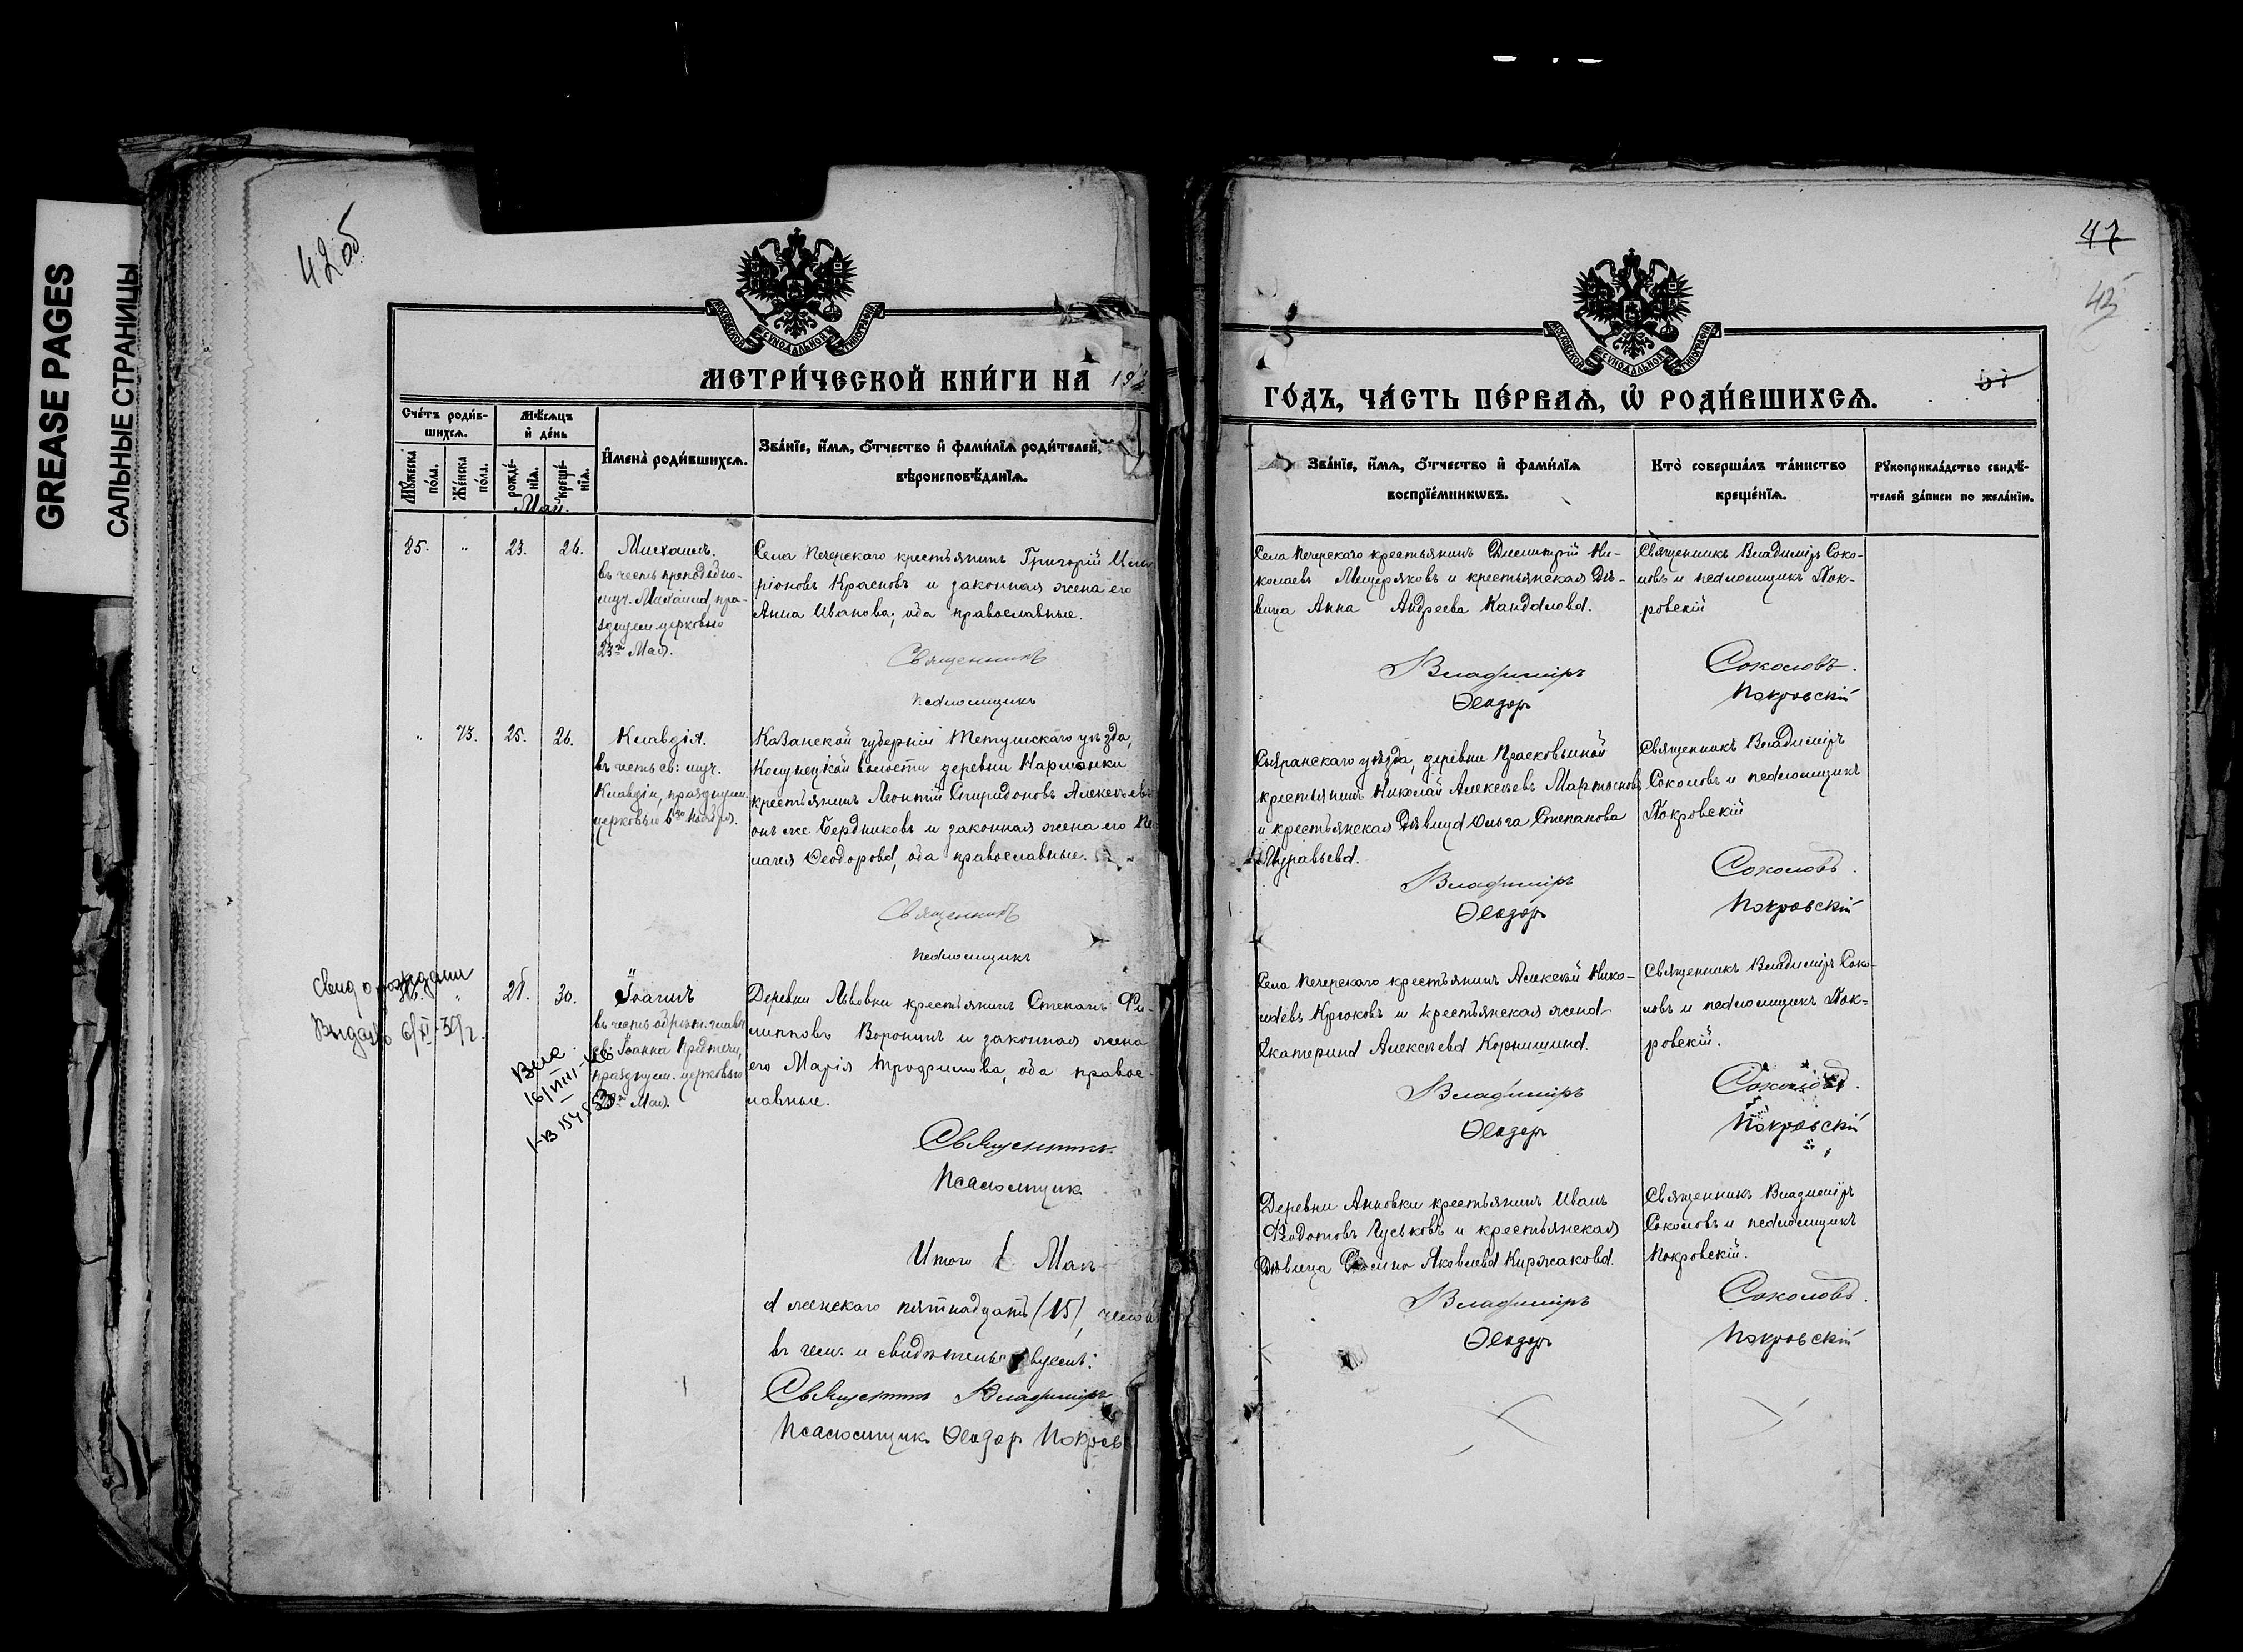 GREASE PAGES
САЛЬНЫЕ СТРАНИЦЫ
42об
МОСКОВСКОЙ СѴНОДАЛЬНОЙ ТИПОГРАФІИ
МЕТРИ́ЧЕСКОЙ КНИ́ГИ НА 19
Сче́тъ роди́в-
шихсѧ.
Мѣ́сѧцъ
и҆ де́нь
Мꙋ́жеска
по́ла.
Же́нска
по́ла.
рожде́-
нїѧ.
креще́-
нїѧ.
И҆мена̀ роди́вшихсѧ.
Зва́нїе, и҆́мѧ, ѻ҆́тчество и҆ фами́лїѧ роди́телей,
вѣроисповѣ́данїѧ.
Май.
85. " 23. 26.
Михаилъ.
въ честь преподобно-
муч. Михаила, пра-
зднуем. церковью
23го Мая.
Села Печерскаго крестьянинъ Григорій Ила
ріоновъ Красновъ и законная жена его
Анна Иванова, оба православные.
Священникъ
псаломщикъ
" 73. 25. 26.
Клавдія.
въ честь св: муч.
Клавдіи, празднуем.
церковью 6го Ноября.
Казанской губерніи Тетушскаго уѣзда,
волости деревни Нармонки
крестьянинъ Леонтій Спиридоновъ Алексѣевъ
онъ же Бердниковъ и законная жена его Пе-
лагея Ѳеодорова, оба православные.
Священникъ
псаломщикъ
Свид о рождении
Выдано
" 28. 30.
Іоаннъ
въ честь обрѣт. главы
св: Іоанна Предтечи,
празднуем. церковью
Мая.
16/VIII-46
Деревни Львовки крестьянинъ Степанъ Фи-
липповъ Воронинъ и законная жена
его Марія Трофимова, оба правос-
лавные.
Священникъ
Псаломщикъ
Итого Маѣ
а женскаго пятнадцать (15), челов
въ чем. и свидѣтельствуемъ:
Священникъ Владиміръ
Псаломщикъ Ѳеодоръ Покров
47
МОСКОВСКОЙ СѴНОДАЛЬНОЙ ТИПОГРАФІИ
ГО́ДЪ, ЧА́СТЬ ПЕ́РВАѦ, Ѡ҆ РОДИ́ВШИХСѦ.
Зва́нїе, и҆́мѧ, ѻ҆́тчество и҆ фами́лїѧ
воспрїе́мникѡвъ.
Кто̀ соверша́лъ та́инство
креще́нїѧ.
Рꙋкоприкла́дство свидѣ́-
телей за́писи по жела́нїю.
Села Печерскаго крестьянинъ Димитрій Ни-
колаевъ Мещеряковъ и крестьянская Дѣ-
вица Анна Андреева Кандалова.
Священникъ Владиміръ Соко-
ловъ и псаломщикъ Пок-
ровскій
Владиміръ Соколовъ.
Ѳеодоръ Покровскій
Сызранскаго уѣзда, деревни Прасковьиной
крестьянинъ Николай Алексѣевъ Мартыновъ
и крестьянская Дѣвица Ольга Степанова
Журавлева.
Священникъ Владиміръ
Соколовъ и псаломщикъ
Покровскій
Владиміръ Соколовъ.
Ѳеодоръ Покровскій
Села Печерскаго крестьянинъ Алексѣй Нико-
лаевъ Крюковъ и крестьянская жена
Екатерина Алексѣева Корнишина.
Священникъ Владиміръ Соко-
ловъ и псаломщикъ Пок-
ровскій.
Владиміръ Соколовъ.
Ѳеодоръ Покровскій
Деревни Анновки крестьянинъ Иванъ
Ѳедотовъ Гуськовъ и крестьянская
Дѣвица Яковлева Киржакова.
Священникъ Владиміръ
Соколовъ и псаломщикъ
Покровскій.
Владиміръ Соколовъ.
Ѳеодоръ Покровскій